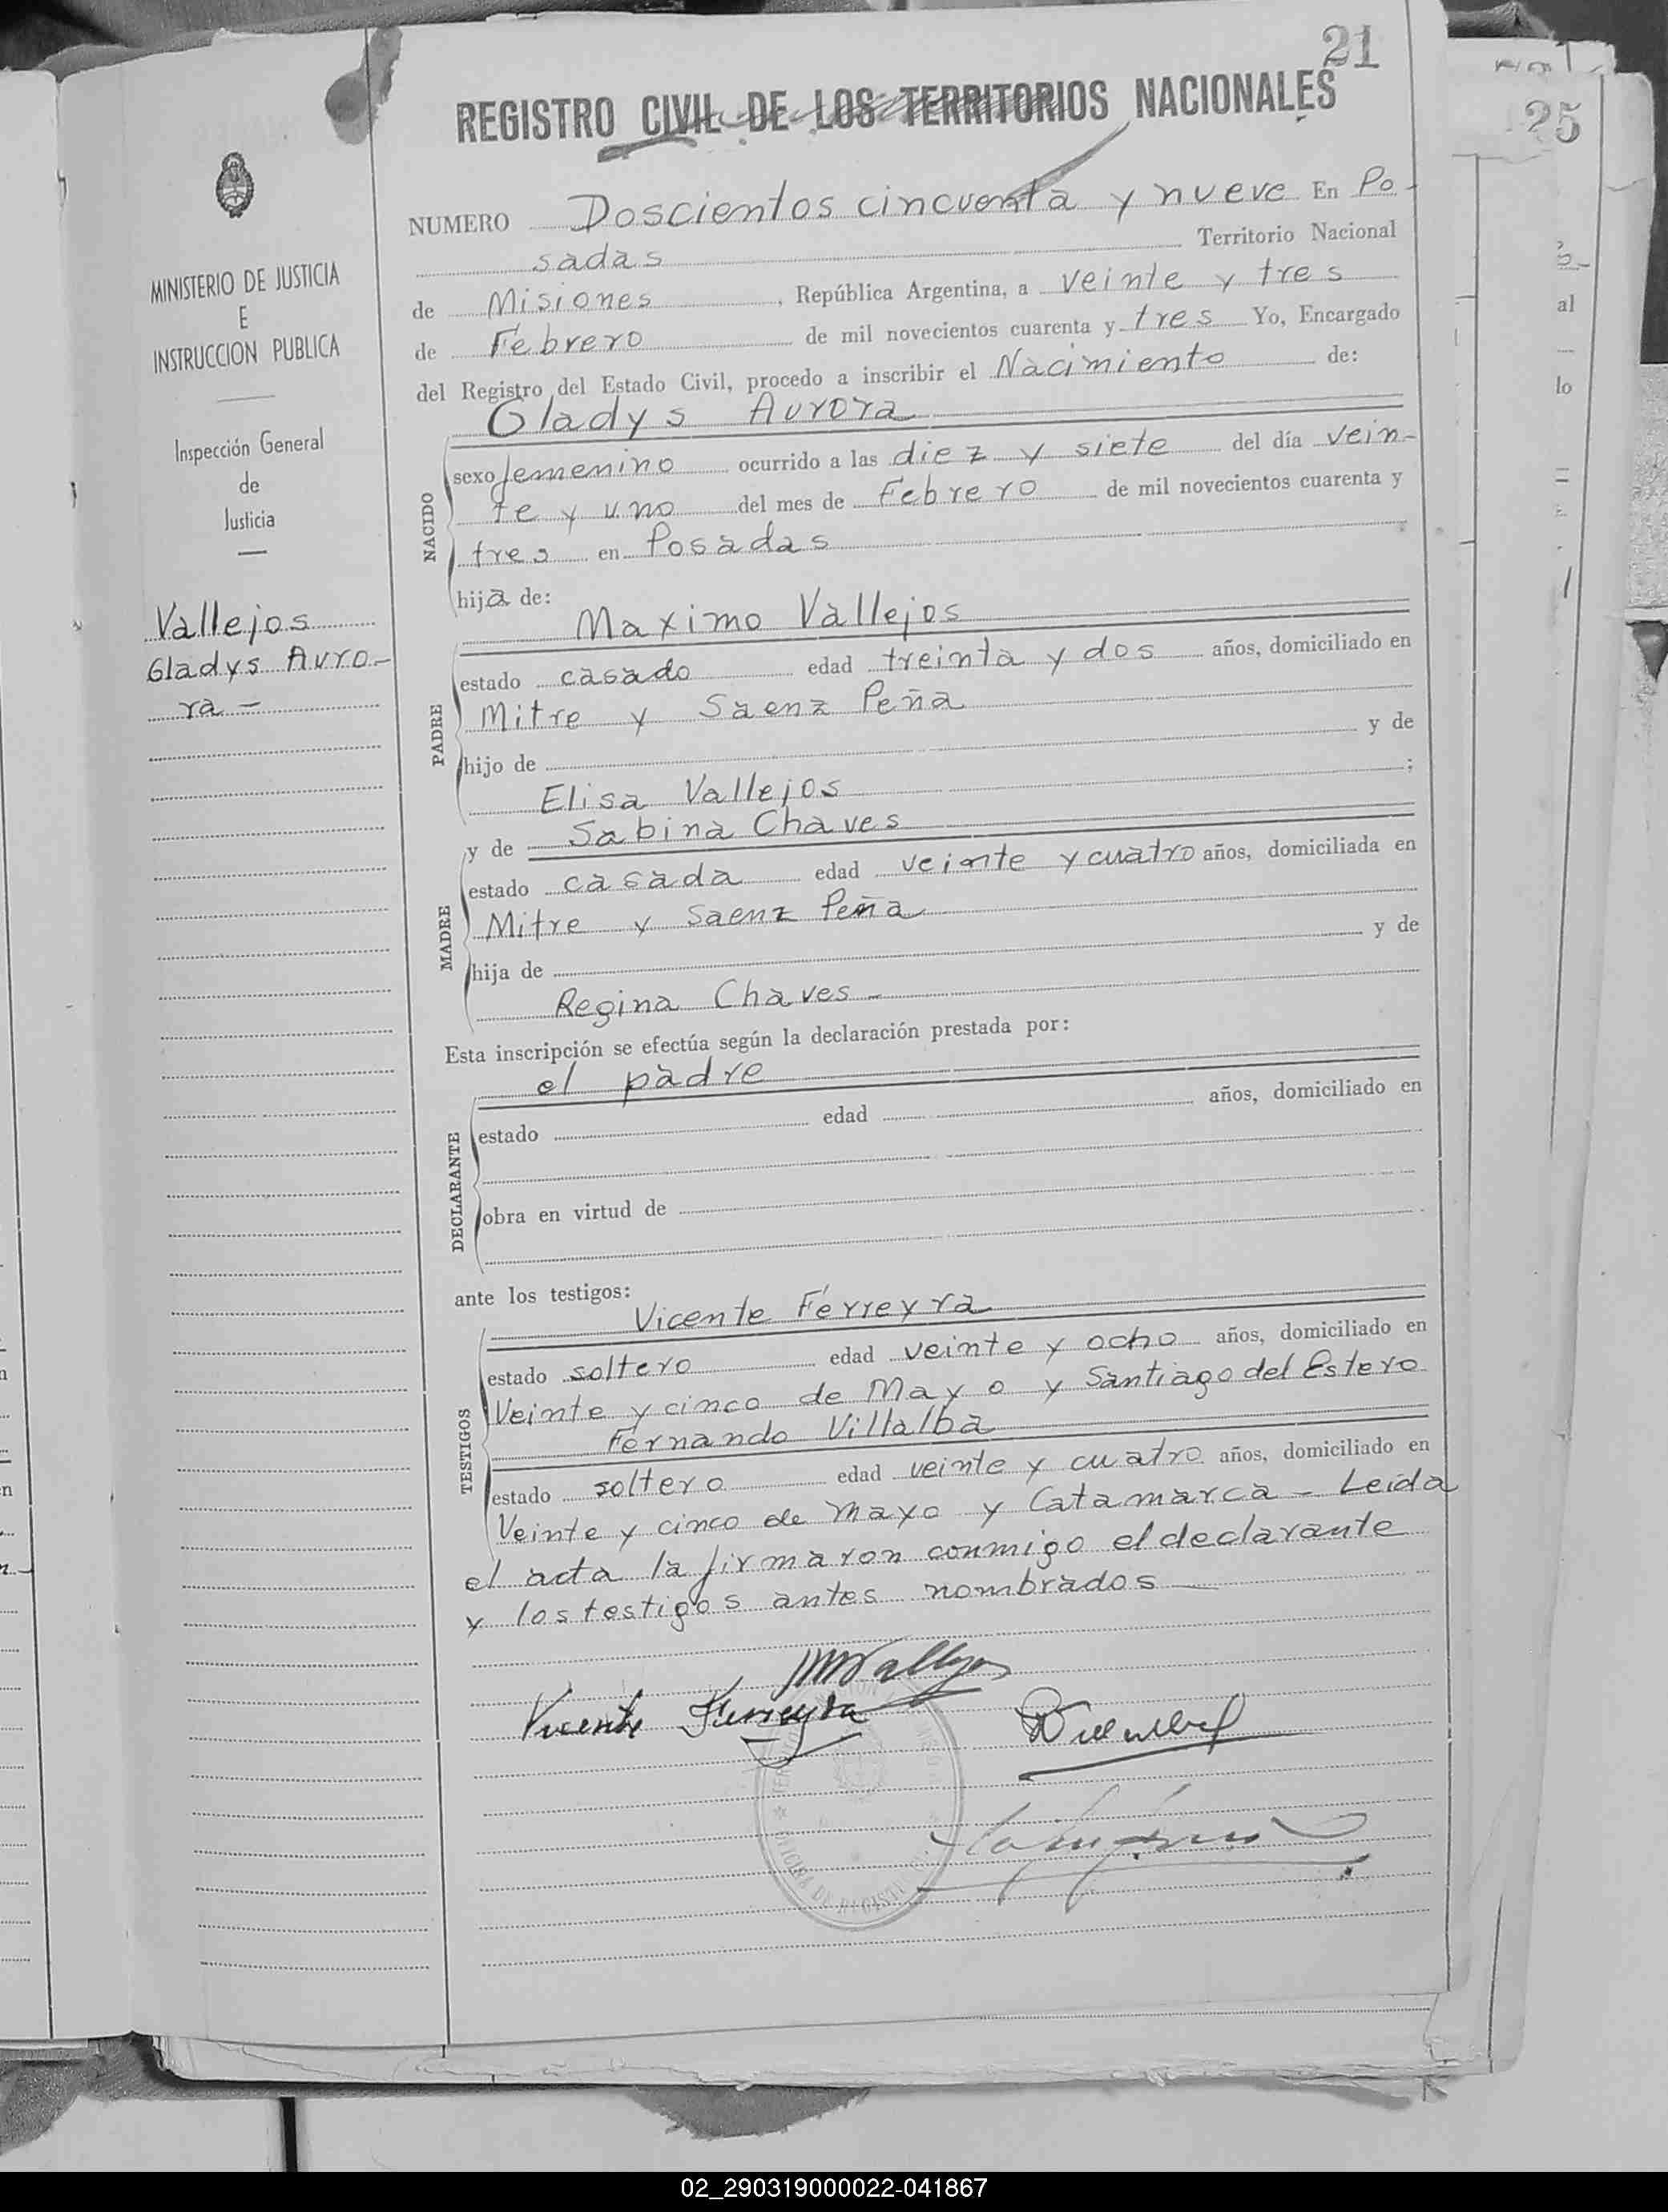 21
REGISTRO CIVIL DE LOS TERRITORIOS NACIONALES
25
MINISTERIO DE JUSTICIA
E
INSTRUCCION PUBLICA
Inspección General
de
Justicia
Vallejos
Gladys Auro-
ra -
NUMERO Doscientos cincuenta y nueve En Po-
sadas Territorio Nacional
de Misiones, República Argentina, a veinte y tres
de Febrero de mil novecientos cuarenta y tres Yo, Encargado
del Registro del Estado Civil, procedo a inscribir el Nacimiento de:
Gladys Aurora
NACIDO
sexo femenino ocurrido a las diez y siete del día vein-
te y uno del mes de Febrero de mil novecientos cuarenta y
tres en Posadas
hija de:
Maximo Vallejos
PADRE
estado casado edad treinta y dos años, domiciliado en
Mitre y Saenz Peña
hijo de y de
Elisa Vallejos ;
y de Sabina Chaves
MADRE
estado casada edad veinte y cuatro años, domiciliada en
Mitre y Saenz Peña
hija de y de
Regina Chaves -
Esta inscripción se efectúa según la declaración prestada por:
el padre
DECLARANTE
estado edad años, domiciliado en
obra en virtud de
ante los testigos:
Vicente Ferreyra
TESTIGOS
estado soltero edad veinte y ocho años, domiciliado en
Veinte y cinco de Mayo y Santiago del Estero
Fernando Villalba
estado soltero edad veinte y cuatro años, domiciliado en
Veinte y cinco de Mayo y Catamarca - Leida
el acta la firmaron conmigo el declarante
y los testigos antes nombrados
MVallejos
Vicente Ferreyra
02_290319000022-041867